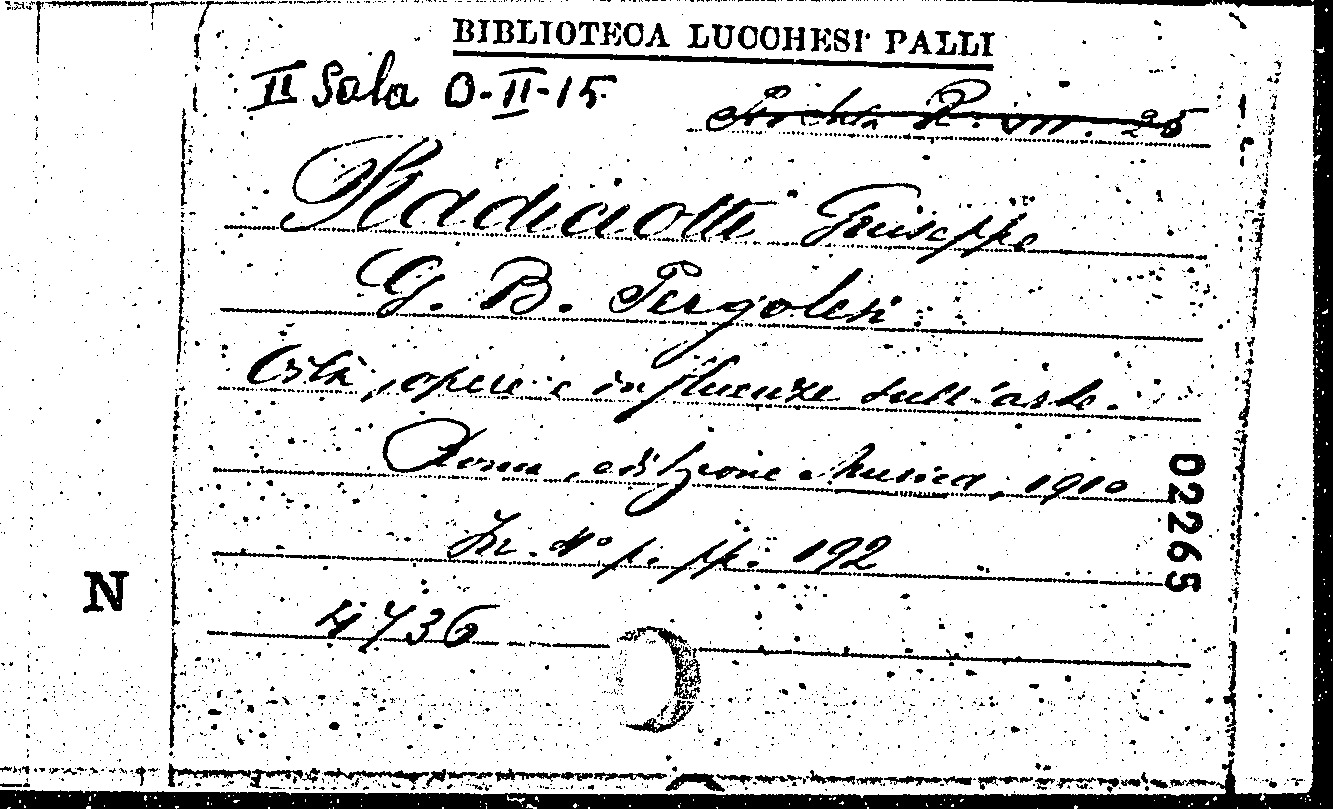 BIBLIOTECA LUCCHESI PALLI
II Sala O-II-15
R. VII. 26
Radiciotti Giuseppe
G. B. Pergolesi
Vita, opere e influenze sull'arte.
Roma, edizione Musica, 1910
In 4° p. pp. 192
02265
N
4736